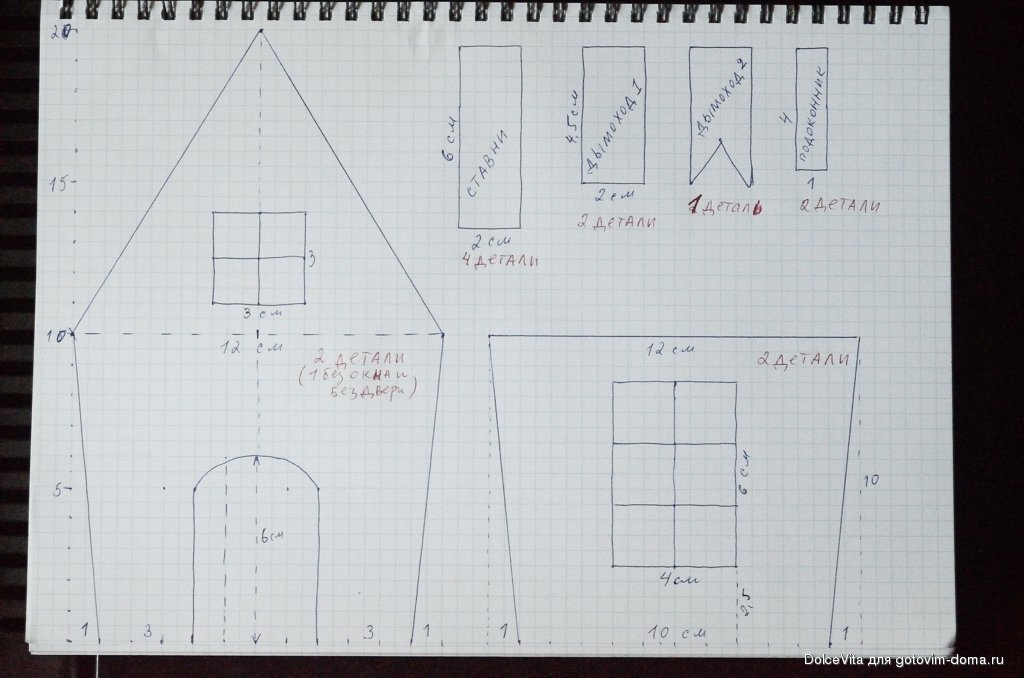 20
15
10
5
3
3 см
12 см
2 детали
(1 без окна и
без двери)
6 см
1
3
3
1
6 см
ставни
2 см
4 детали
4,5 см
дымоход 1
2 см
2 детали
дымоход 2
1 деталь
4
подоконник
1
2 детали
12 см
2 детали
6 см
10
4 см
2,5
1
10 см
1
DolceVita для gotovim-doma.ru